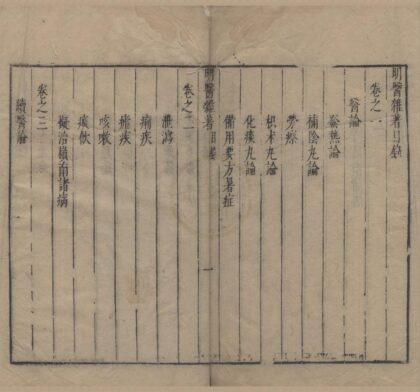 明醫雜著目錄
卷之一
醫論
發熱論
補陰丸論
勞瘵
枳朮丸論
化痰丸論
備用要方暑症
明醫雜著 目錄 一
卷之二
泄瀉
痢疾
瘧疾
咳嗽
痰飲
擬治嶺南諸病
卷之三
續醫論